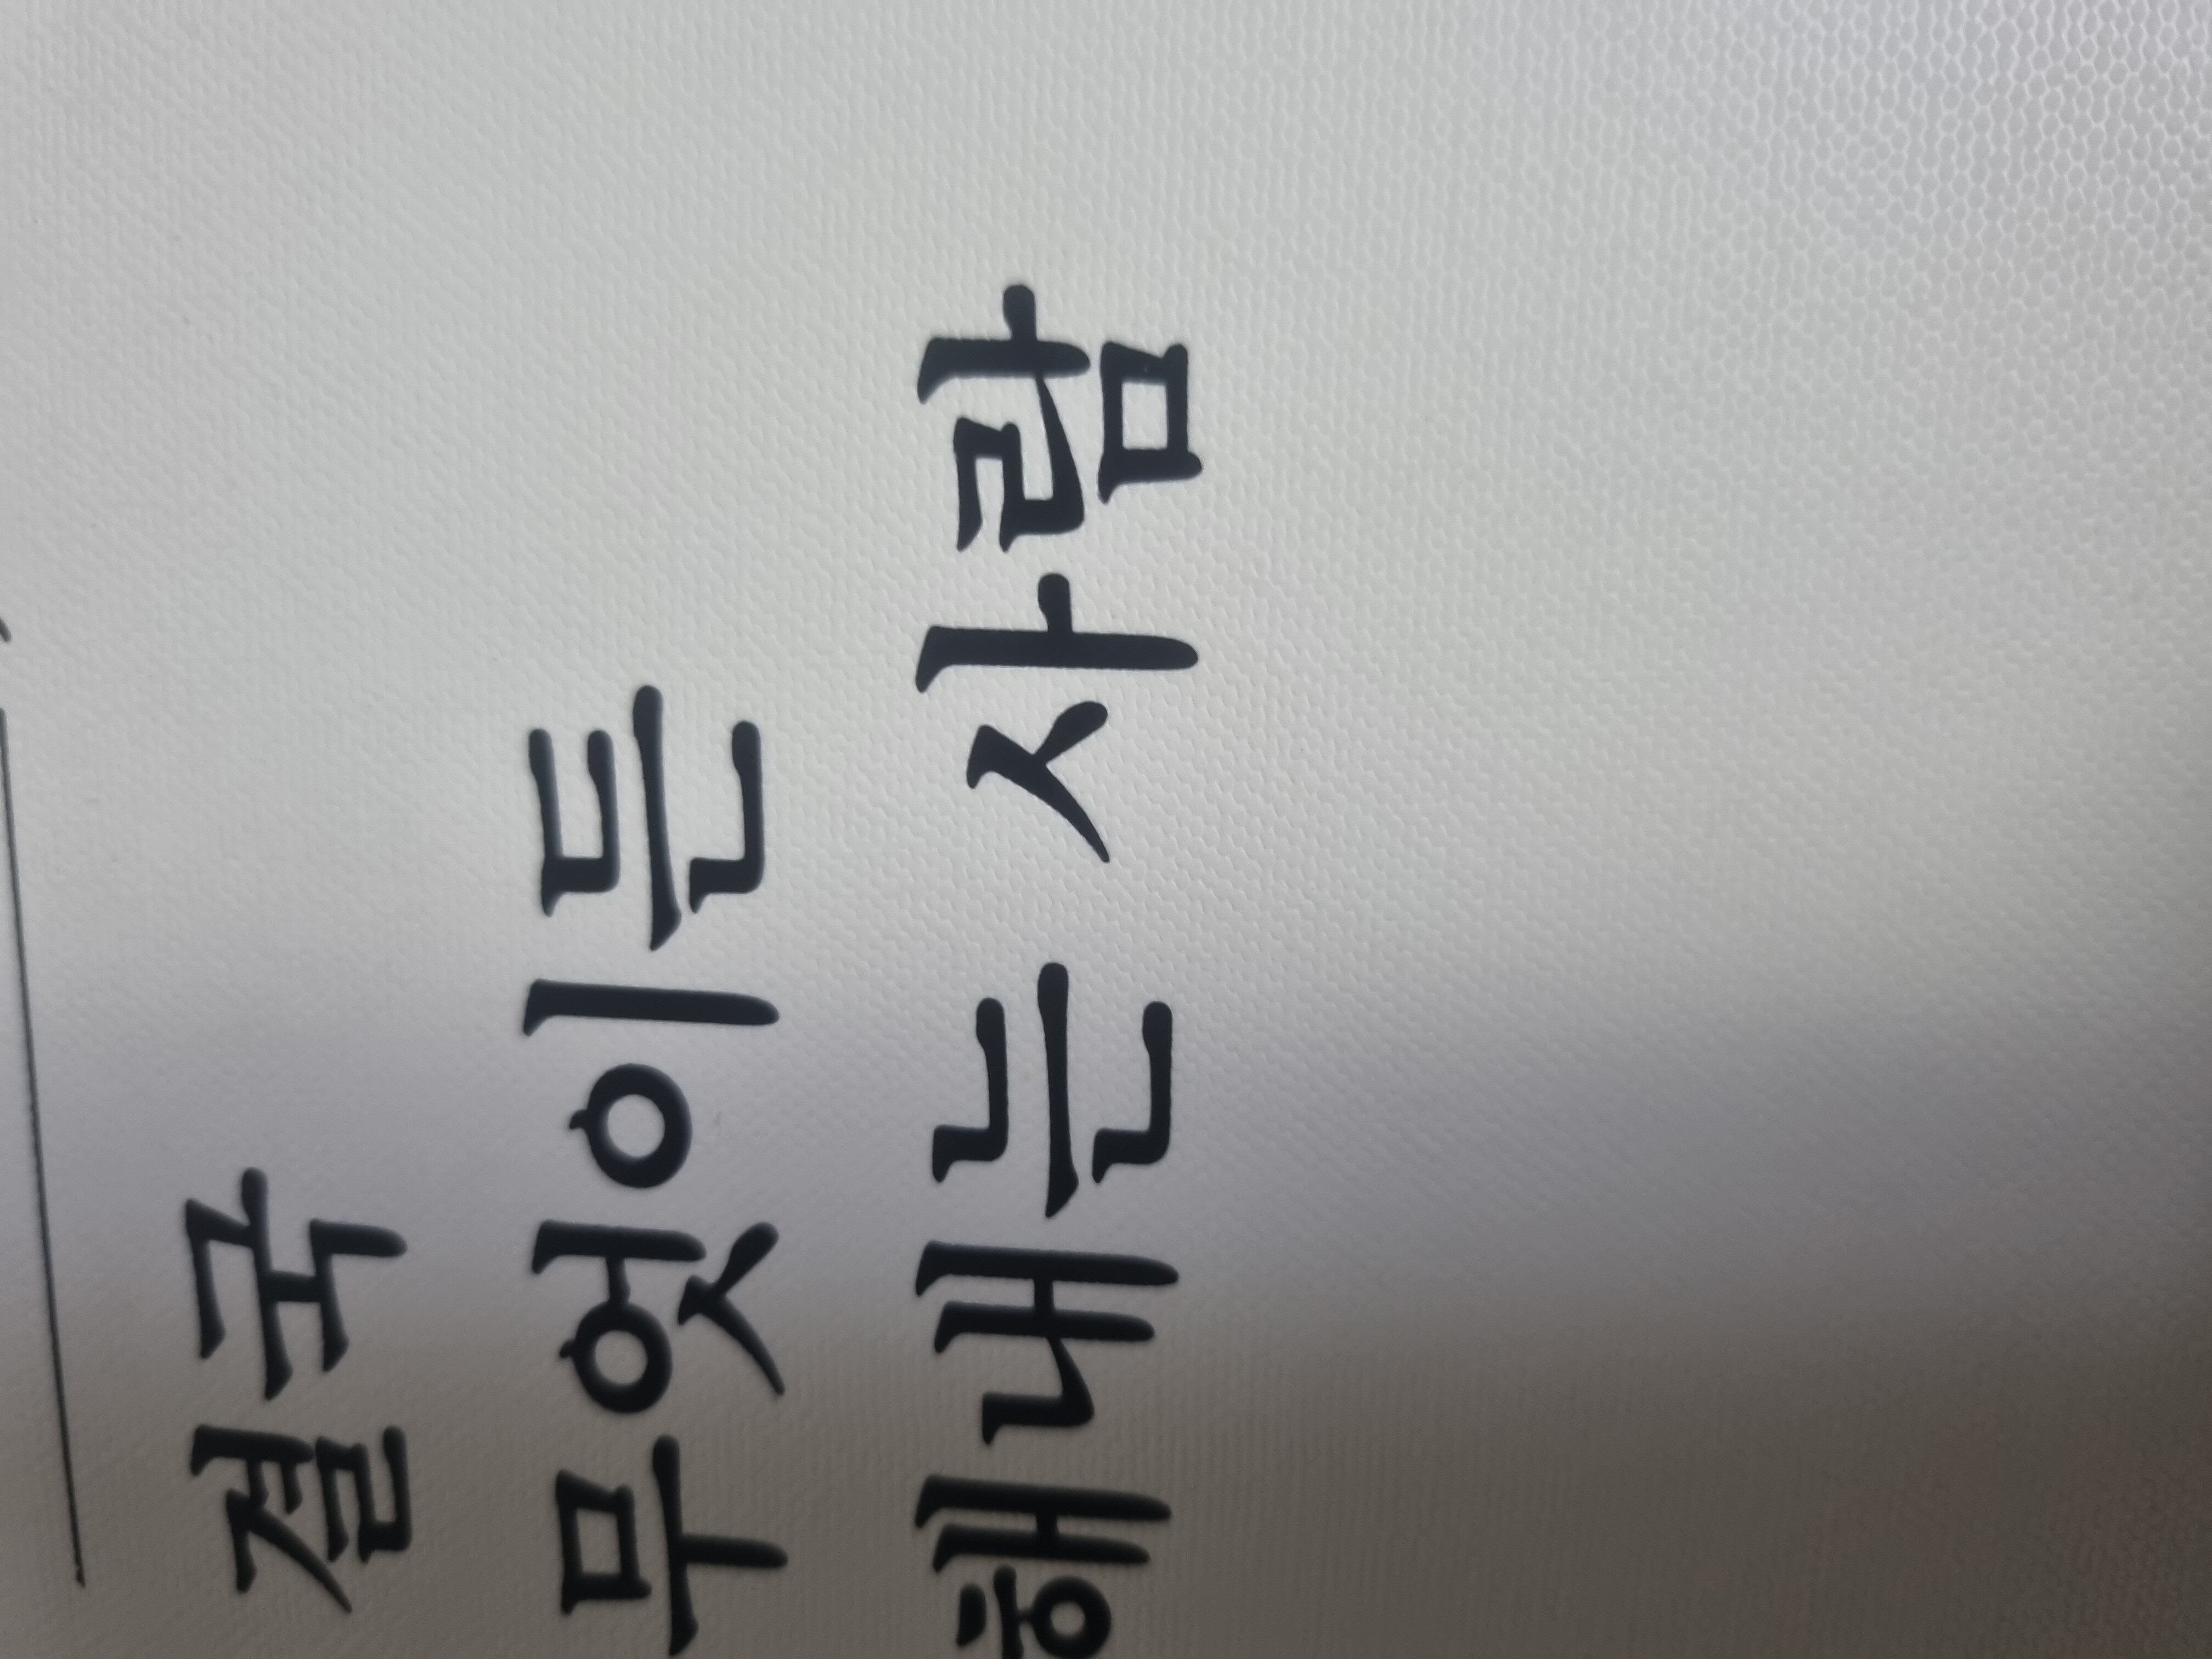 결국
무엇이든
해내는 사람